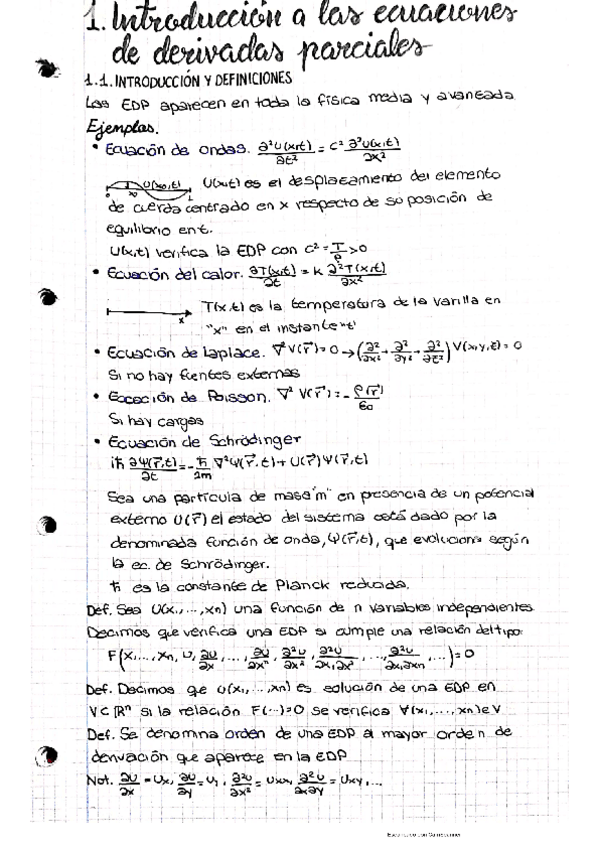 1. Introducción a las ecuaciones
de derivadas parciales
1.1. INTRODUCCIÓN Y DEFINICIONES
Las EDP aparecen en toda la física media y avanzada
Ejemplos.
• Ecuación de ondas. ∂²U(x,t)/∂t² = c² ∂²U(x,t)/∂x²
U(x₀,t) U(x,t) es el desplazamiento del elemento
0 x₀ L
de cuerda centrado en x respecto de su posición de
equilibrio en t.
U(x,t) verifica la EDP con c² = T/ρ > 0
• Ecuación del calor. ∂T(x,t)/∂t = k ∂²T(x,t)/∂x²
T(x,t) es la temperatura de la varilla en
x
"x" en el instante "t"
• Ecuación de Laplace. ∇²V(r⃗) = 0 → (∂²/∂x² + ∂²/∂y² + ∂²/∂z²) V(x,y,z) = 0
Si no hay fuentes externas
• Ecación de Poisson. ∇² V(r⃗) = - ρ(r⃗)/ε₀
Si hay cargas
• Ecuación de Schrödinger
iħ ∂Ψ(r⃗,t)/∂t = - ħ/2m ∇²Ψ(r⃗,t) + U(r⃗)Ψ(r⃗,t)
Sea una partícula de masa "m" en presencia de un potencial
externo U(r⃗) el estado del sistema está dado por la
denominada función de onda, Ψ(r⃗,t), que evoluciona según
la ec. de Schrödinger.
ħ es la constante de Planck reducida.
Def. Sea U(x₁,...,xn) una función de n variables independientes
Decimos que verifica una EDP si cumple una relación del tipo:
F(x₁,...,xn, U, ∂U/∂x,..., ∂U/∂xn, ∂²U/∂x², ∂²U/∂x₁∂x²,..., ∂²U/∂x₁∂xn,...) = 0
Def. Decimos que U(x₁,...,xn) es solución de una EDP en
V⊂ℝⁿ si la relación F(...)=0 se verifica ∀(x₁,...,xn)∈V
Def. Se denomina orden de una EDP al mayor orden de
derivación que aparece en la EDP
Not. ∂U/∂x = Ux, ∂U/∂y = Uy, ∂²U/∂x² = Uxx, ∂²U/∂x∂y = Uxy,...
Escaneado con CamScanner